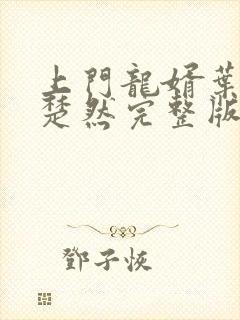 上門龍婿葉
楚然完整版
鄧子恢